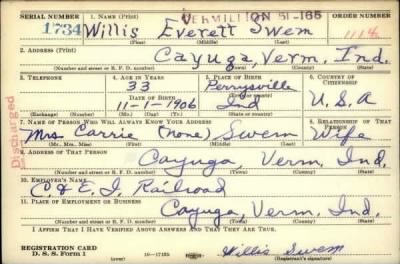 SERIAL NUMBER 1. NAME (Print) VERMILLION 51-165 ORDER NUMBER
1734 Willis Everett Swem 1114
(First) (Middle) (Last)
2. ADDRESS (Print)
Cayuga, Verm. Ind.
(Number and street or R. F. D. number) (Town) (County) (State)
3. TELEPHONE 4. AGE IN YEARS 5. PLACE OF BIRTH 6. COUNTRY OF CITIZENSHIP
33 Perrysville
(Town or county)
DATE OF BIRTH
11-1-1906 Ind U.S.A
(Exchange) (Number) (Mo.) (Day) (Yr.) (State or country)
7. NAME OF PERSON WHO WILL ALWAYS KNOW YOUR ADDRESS 8. RELATIONSHIP OF THAT PERSON
Mrs Carrie (None) Swem Wife
(Mr., Mrs., Miss) (First) (Middle) (Last)
9. ADDRESS OF THAT PERSON
Cayuga, Verm. Ind.
(Number and street or R. F. D. number) (Town) (County) (State)
10. EMPLOYER'S NAME
C. & E. I. Railroad
11. PLACE OF EMPLOYMENT OR BUSINESS
Cayuga, Verm. Ind.
(Number and street or R. F. D. number) (Town) (County) (State)
I AFFIRM THAT I HAVE VERIFIED ABOVE ANSWERS AND THAT THEY ARE TRUE.
REGISTRATION CARD
D. S. S. Form 1 16-17105 Willis Swem
(Registrant's signature)
Discharged